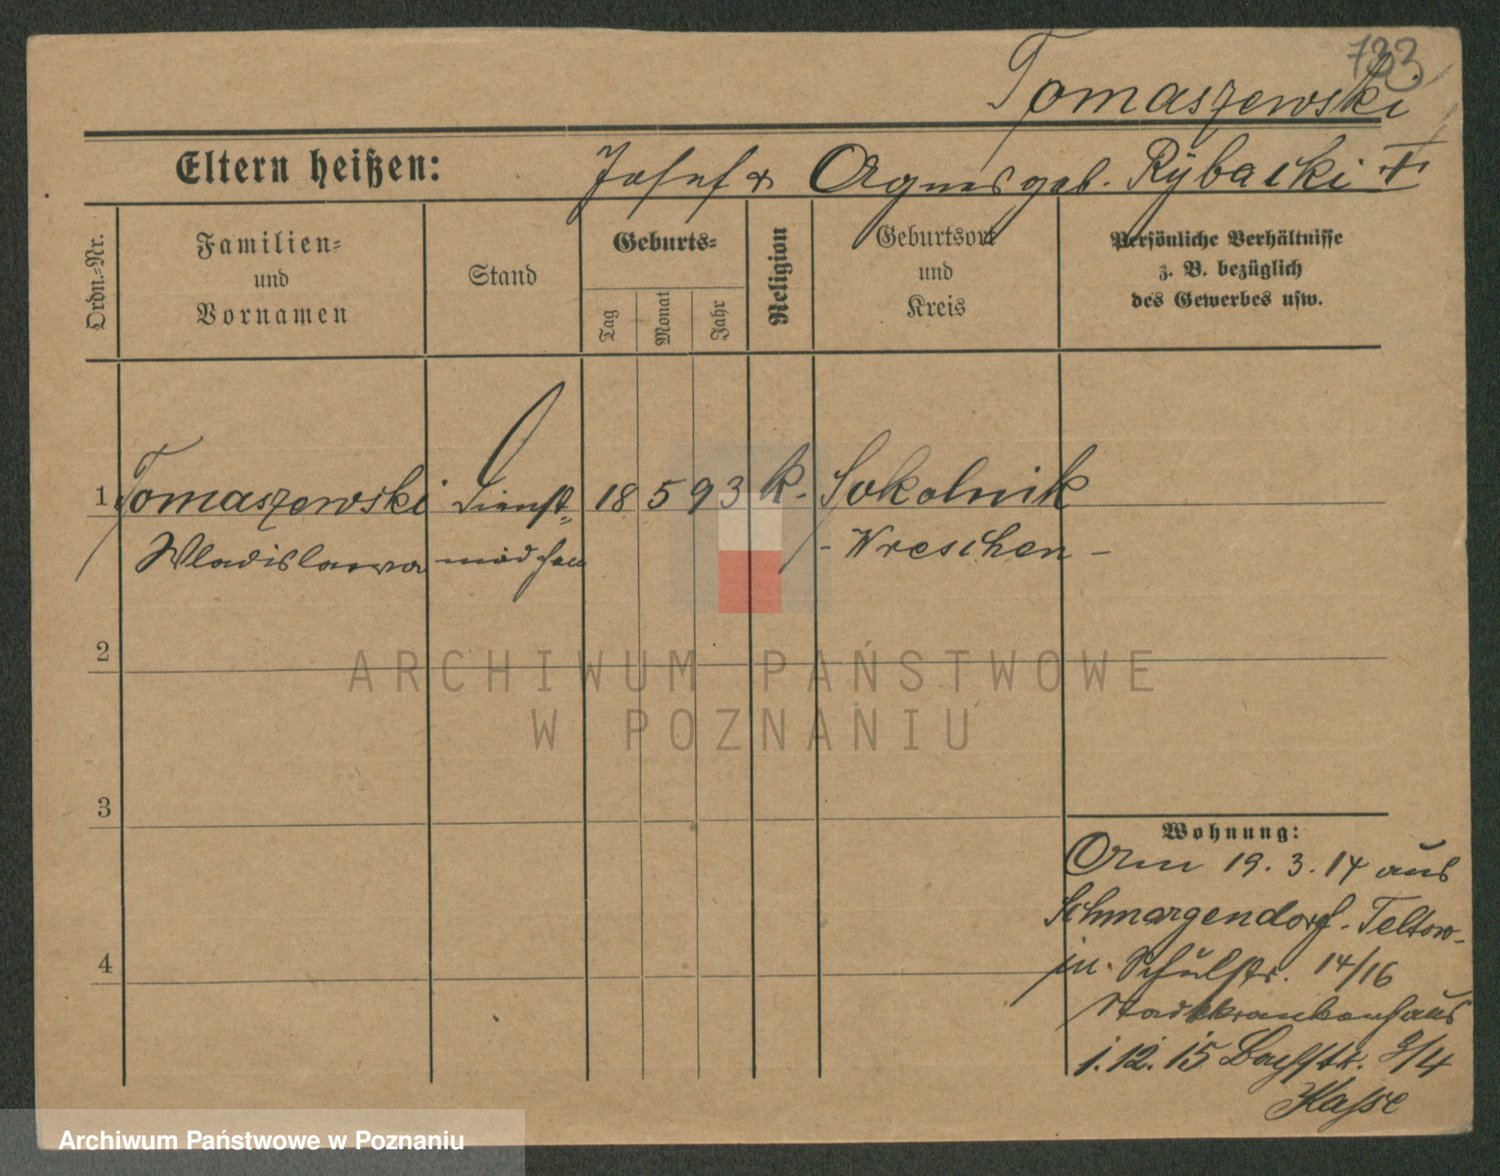 733
Tomaszewski
Eltern heißen: Josef & Agnes geb. Rybacki +
Ordn.-Nr.
Familien-
und
Vornamen
Stand
Geburts-
Tag
Monat
Jahr
Religion
Geburtsort
und
Kreis
Persönliche Verhältnisse
z. B. bezüglich
des Gewerbes usw.
1 Tomaszewski Dienst- 18 5 93 k. Sokolnik
Wladislawa mädchen - Wreschen -
2
3
4
Wohnung:
Am 19.3.14 aus
Schmargendorf-Teltow-
in. Schulstr. 14/16
Stadtkrankenhaus
1.12.15 Bachstr. 3/4
ARCHIWUM PAŃSTWOWE
W POZNANIU
Archiwum Państwowe w Poznaniu